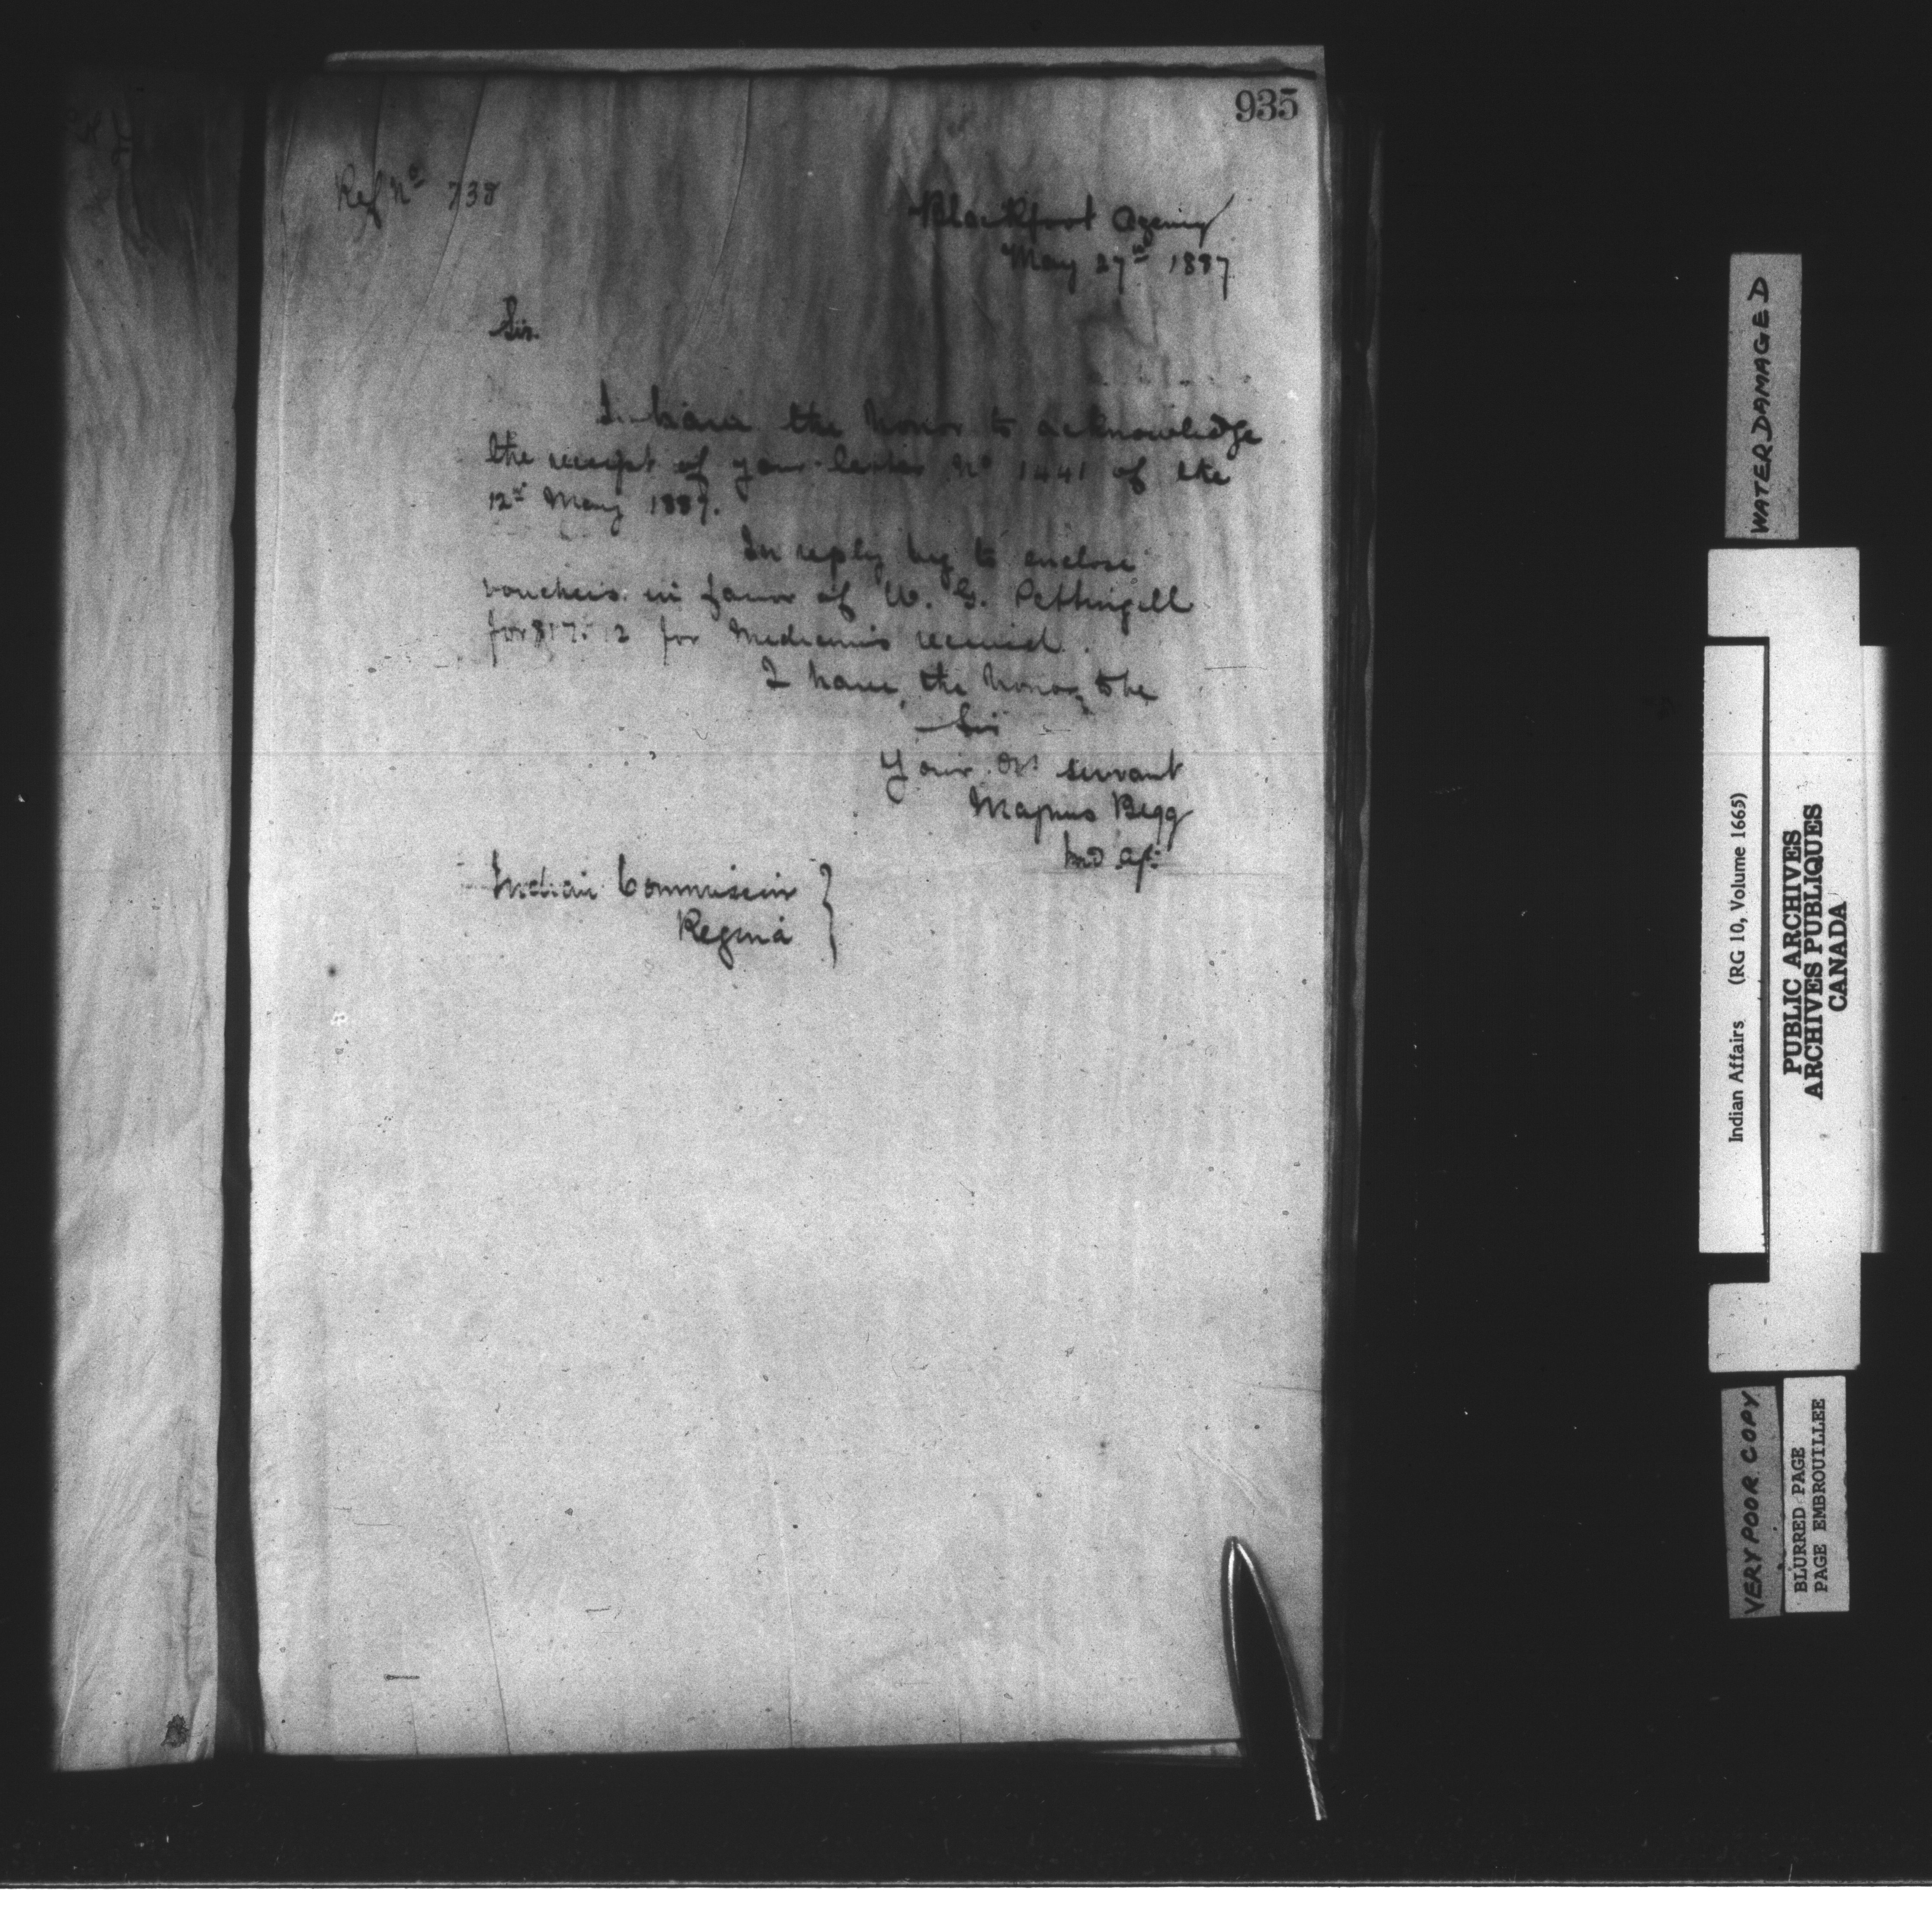 935
Ref No 738
Blackfoot Agency
May 27th 1887
Sir.
I have the honor to acknowledge
the receipt of your letter No 1441 of the
12th May 1887.
In reply beg to enclose
vouchers in favor of W. G. Pettingell
for for Medicines received.
I have the honor to be
Sir
Your Obt servant
Magnus Begg
Ind Agt
Indian Commissioner
Regina
WATERDAMAGED
Indian Affairs (RG 10, Volume 1665)
PUBLIC ARCHIVES
ARCHIVES PUBLIQUES
CANADA
VERY POOR COPY
BLURRED PAGE
PAGE EMBROUILLEE